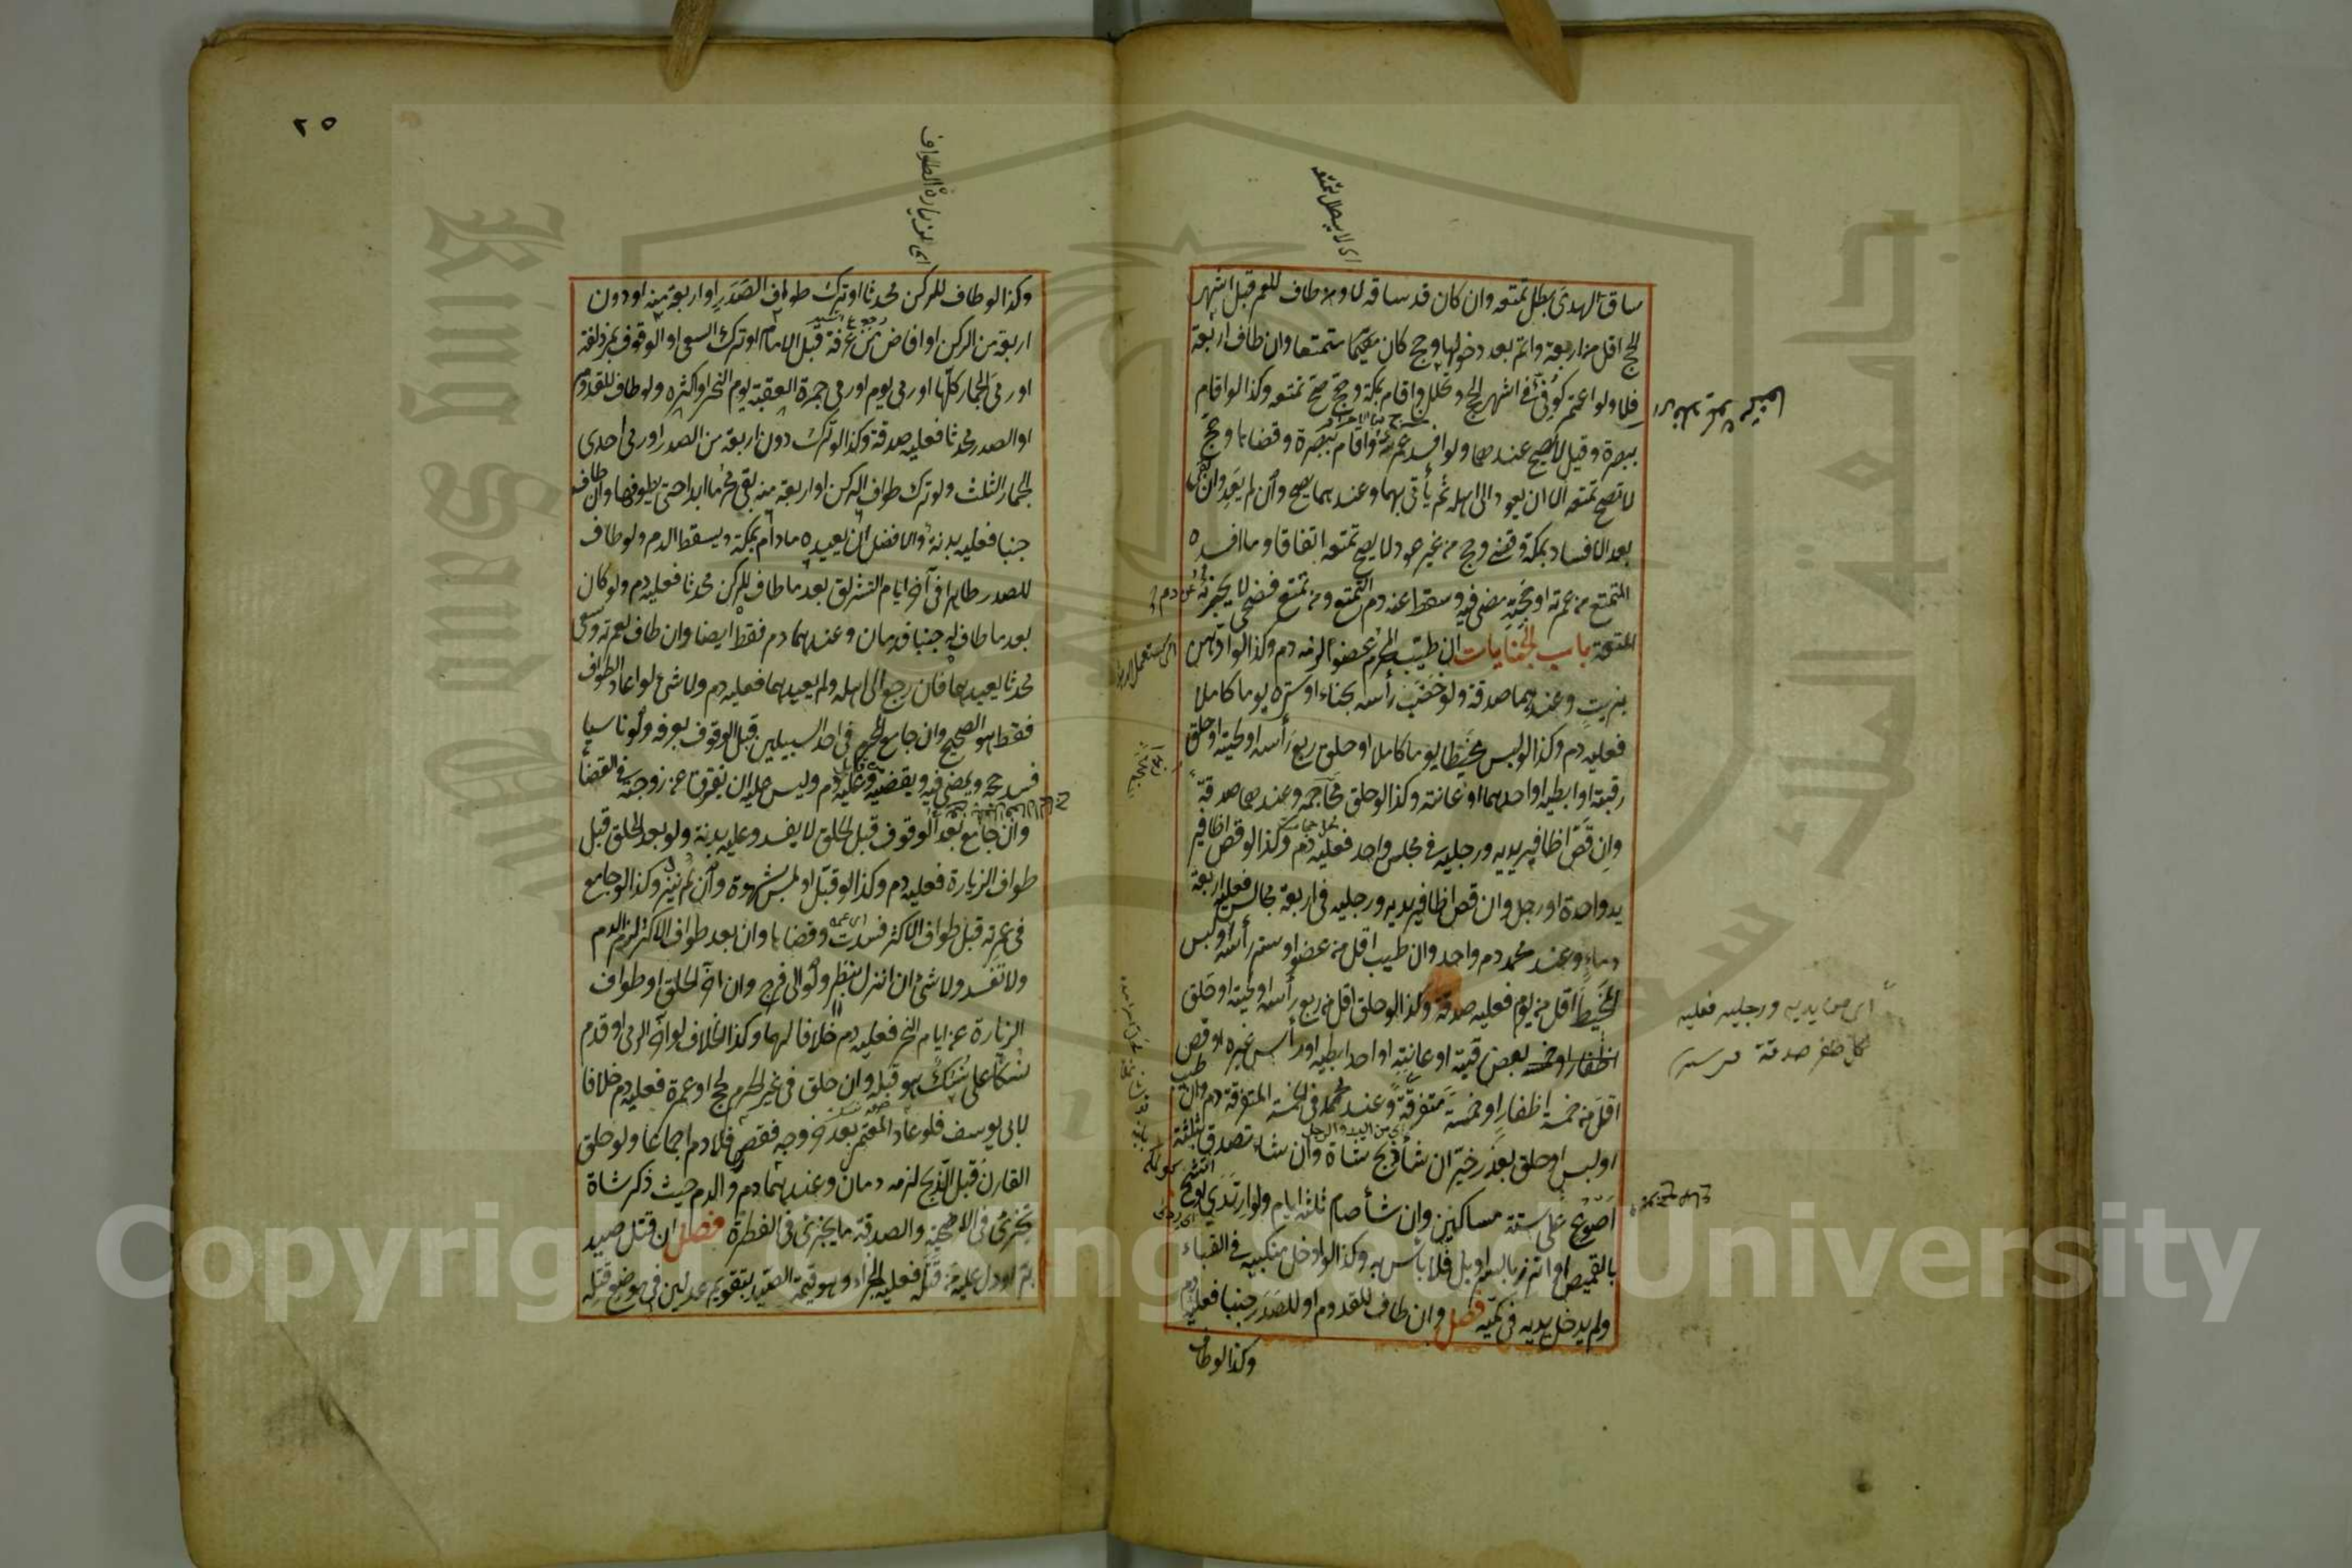 ساق الهدى بطل تمتعه وان كان قد ساقه لا ومن طاف للعمرة قبل اشهر
الحج اقل من اربعة واتم بعد دخولها وحج كان متمتعا وان طاف اربعة
فلا ولو اعتمر كوفي في اشهر الحج وتحلل واقام بمكة وحج صح تمتعه وكذا لو اقام
ببصرة وقيل لا يصح عندهما ولو افسد عمرته واقام ببصرة وقضاها وحج
لا تصح تمتعه الا ان يعود الى اهله ثم يأتي بهما وعندهما يصح وان لم يعد وان بقى
بعد الافساد بمكة وقضى وحج من غير عود لا يصح تمتعه اتفاقا وما افسده
المتمتع من عمرته او حجته مضى فيه وسقط عنه دم التمتع ومن تمتع فضحى لا يجزئه عن دم
المتعة باب الجنايات ان طيب المحرم عضوا لزمه دم وكذا لو ادهن
بزيت وعندهما صدقة ولو خضب رأسه بحناء او ستره يوما كاملا
فعليه دم وكذا لو لبس مخيطا يوما كاملا او حلق ربع رأسه او لحيته او حلق
رقبته او ابطيه او احدهما او عانته وكذا لو حلق محاجمه وعندهما صدقة
وان قص اظافير يديه ورجليه في مجلس واحد فعليه دم وكذا لو قص اظافير
يد واحدة او رجل وان قص اظافير يديه ورجليه في اربعة مجالس فعليه اربعة
دماء وعند محمد دم واحد وان طيب اقل من عضو او ستر رأسه او لبس
المخيط اقل من يوم فعليه صدقة وكذا لو حلق اقل من ربع رأسه او لحيته او حلق
بعض رقبته او عانته او احد ابطيه او رأس غيره او قص
اقل من خمسة اظفار او خمسة متفرقة وعند محمد في الخمسة المتفرقة دم وان طيب
او لبس او حلق بعذر خير ان شاء ذبح شاة وان شاء تصدق بثلاثة
اصوع على ستة مساكين وان شاء صام ثلثة ايام ولو ارتدى او اتشح
بالقميص او اتزر بالسراويل فلا بأس به وكذا لو ادخل منكبيه في القباء
ولم يدخل يديه في كميه فصل وان طاف للقدوم او للصدر جنبا فعليه دم
وكذا لو طاف
اى لا يبطل تمتعه
اى من يديه ورجليه فعليه
لكل ظفر صدقة
٢٥
اى طواف الزيارة
وكذا لو طاف للركن محدثا او ترك طواف الصدر او اربعة منه او دون
اربعة من الركن او افاض من عرفة قبل الامام او ترك السعى او الوقوف بمزدلفة
او رمى الجمار كلها او رمى يوم او رمى جمرة العقبة يوم النحر او اكثره ولو طاف للقدوم
او الصدر محدثا فعليه صدقة وكذا لو ترك دون اربعة من الصدر او رمى احدى
الجمار الثلث ولو ترك طواف الركن او اربعة منه بقى محرما ابدا حتى يطوفها وان طافه
جنبا فعليه بدنة والافضل ان يعيده ما دام بمكة ويسقط الدم ولو طاف
للصدر طاهرا في آخر ايام التشريق بعد ما طاف للركن محدثا فعليه دم ولو كان
بعد ما طاف له جنبا فدمان وعندهما دم فقط ايضا وان طاف لعمرته وسعى
محدثا يعيدهما فان رجع الى اهله ولم يعيدهما فعليه دم ولا شئ لو اعاد الطواف
فقط هو الصحيح وان جامع المحرم في احد السبيلين قبل الوقوف بعرفة ولو ناسيا
فسد حجه ويمضى فيه ويقضيه وعليه دم وليس عليه ان يفترق عن زوجته في القضاء
وان جامع بعد الوقوف قبل الحلق لا يفسد وعليه بدنة ولو بعد الحلق قبل
طواف الزيارة فعليه دم وكذا لو قبل او لمس بشهوة وان لم ينزل وكذا لو جامع
في عمرته قبل طواف الاكثر فسدت وقضاها وان بعد طواف الاكثر لزم الدم
ولا تفسد ولا شئ ان انزل بنظر ولو الى فرج وان اخر الحلق او طواف
الزيارة عن ايام النحر فعليه دم خلافا لهما وكذا الخلاف لو اخر الرمى او قدم
نسكا على نسك هو قبله وان حلق في غير الحرم لحج او عمرة فعليه دم خلافا
لابى يوسف فلو عاد المعتمر بعد خروجه فقصر فلا دم اجماعا ولو حلق
القارن قبل الذبح لزمه دمان وعندهما دم والدم حيث ذكر شاة
تجزئ في الاضحية والصدقة ما يجزئ في الفطرة فصل ان قتل صيد
بر او دل عليه من قتله فعليه الجزاء وهو قيمة الصيد بتقويم عدلين في موضع قتله
King Saud University
Copyright © King Saud University